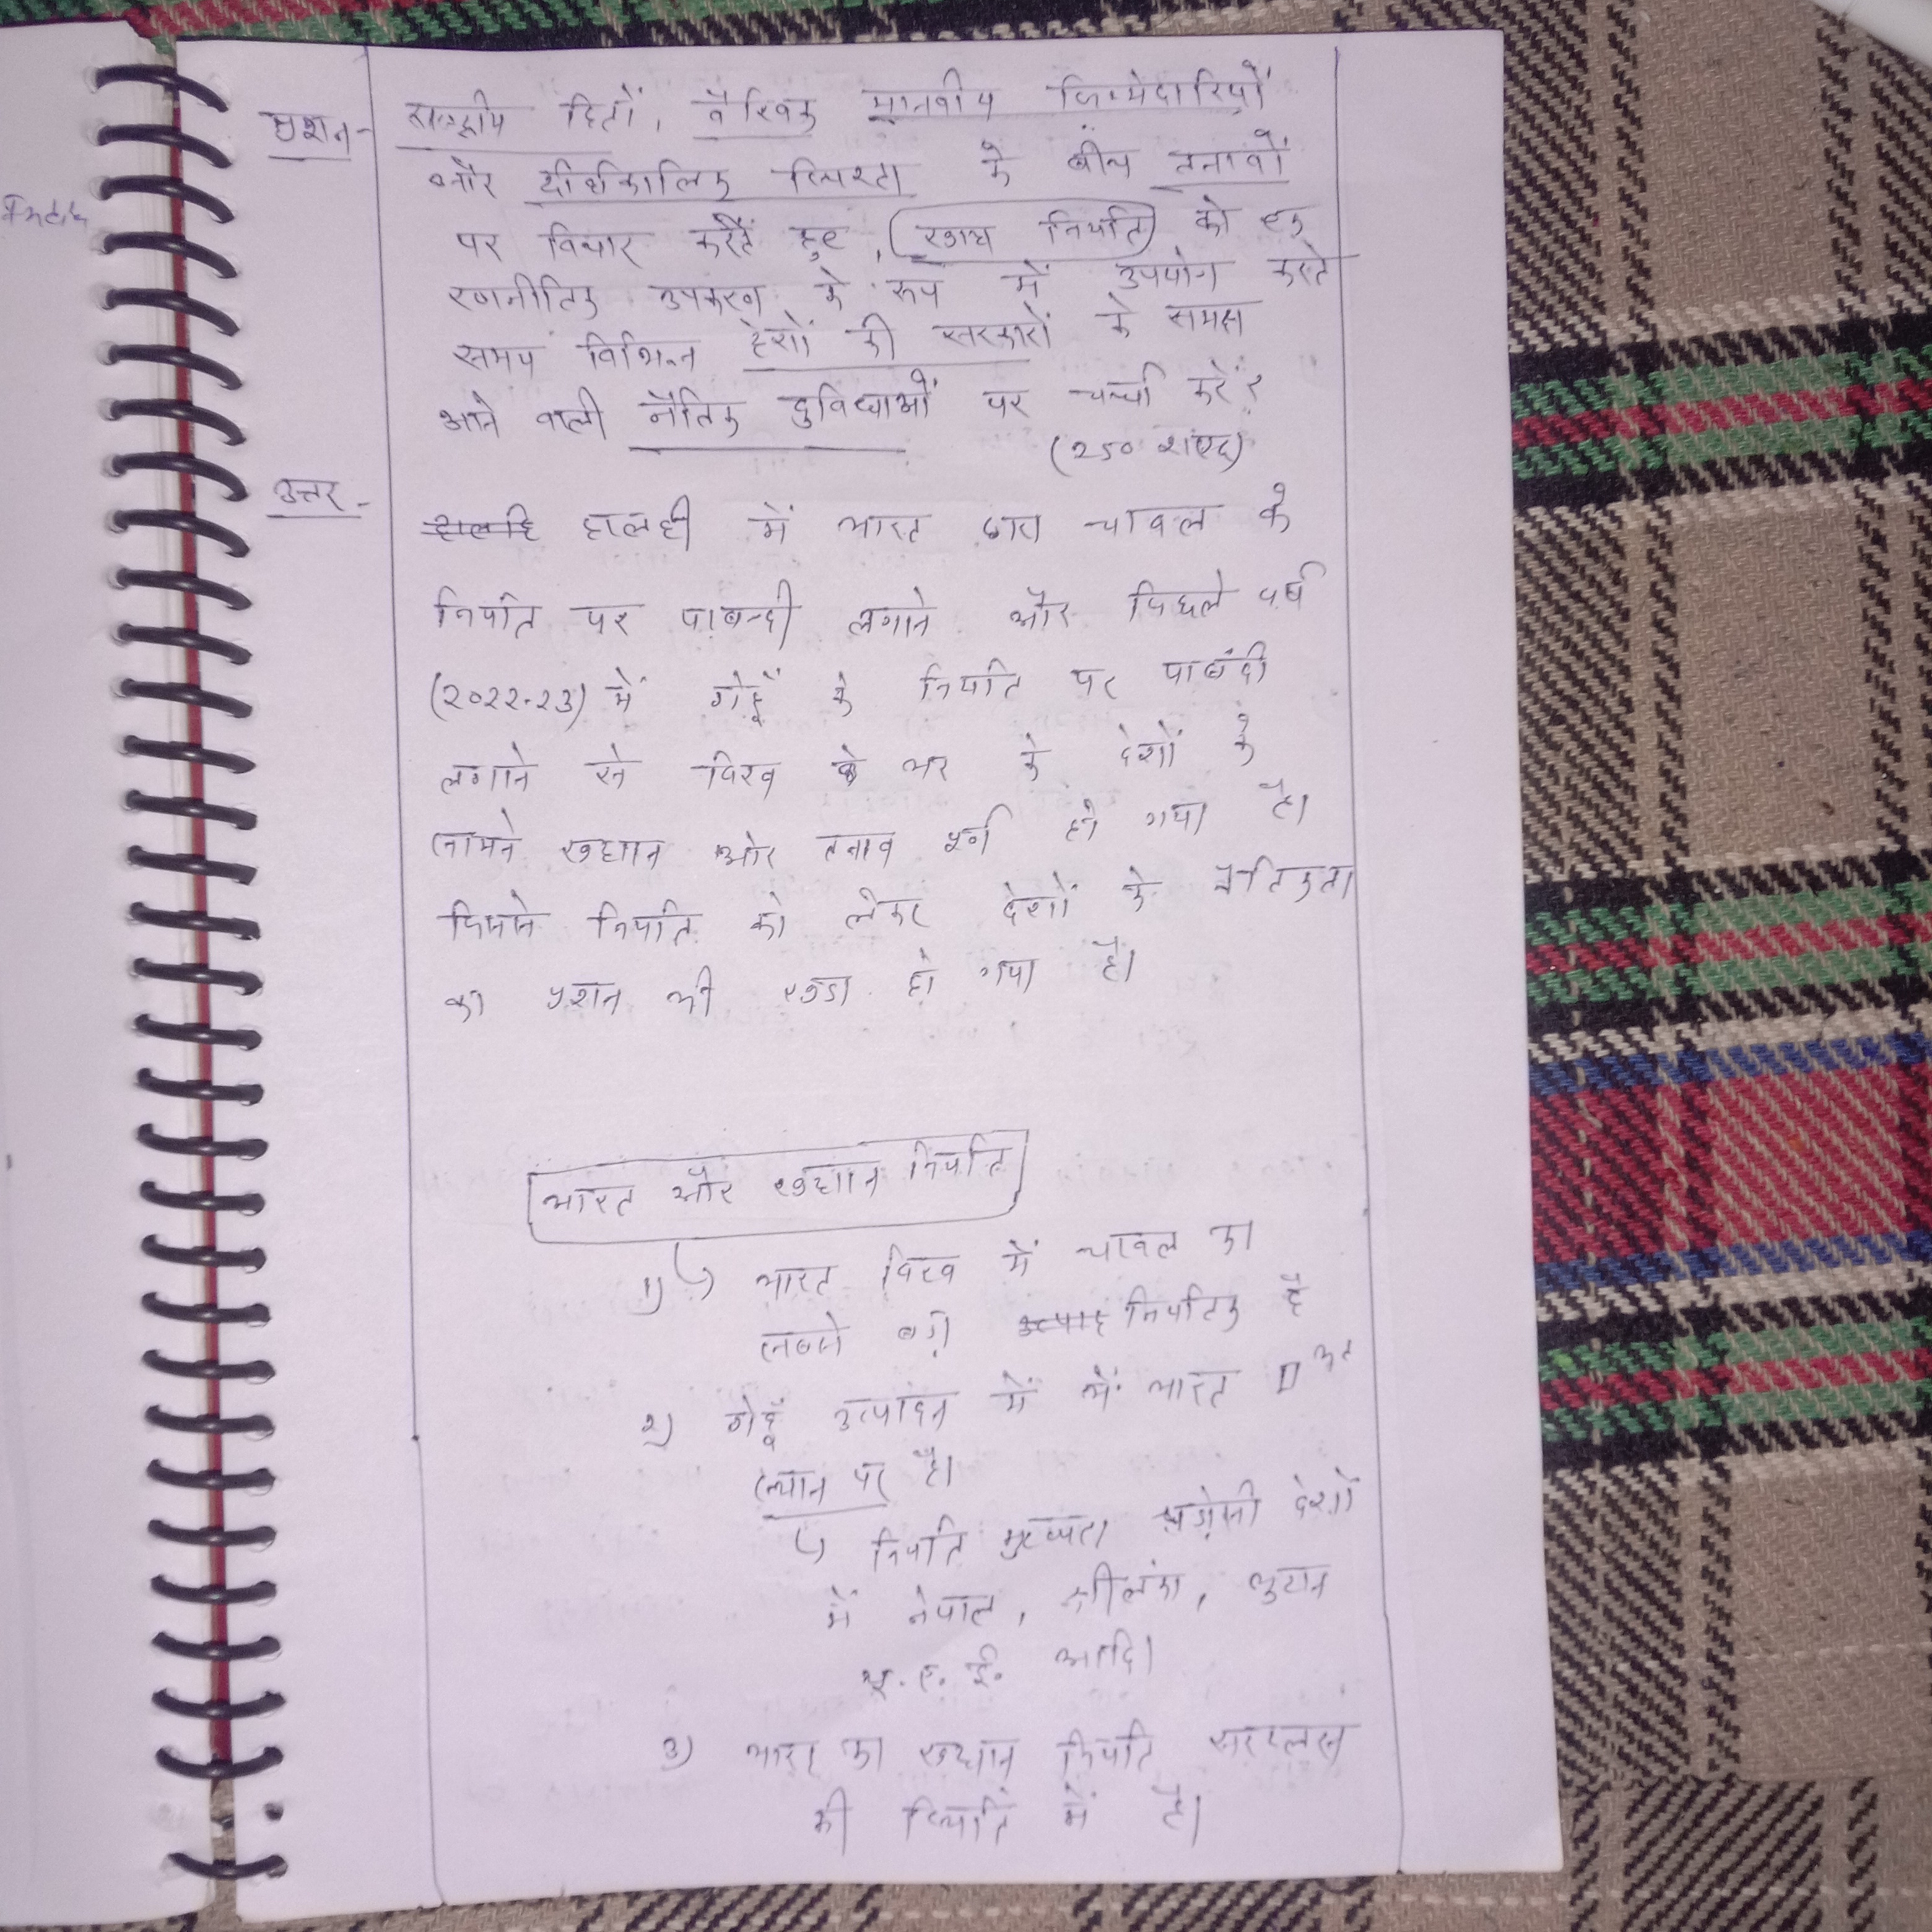 प्रशन- राष्ट्रीय हितों, वैश्विक मानवीय जिम्मेदारियों
और दीर्घकालिक स्थिरता के बीच तनावों
पर विचार करतें हुए, खाद्य निर्यात को एक
रणनीतिक उपकरण के रूप में उपयोग करते
समय विभिन्न देशों की सरकारों के समक्ष
आने वाली नैतिक दुविधाओं पर चर्चा करें?
(250 शब्द)
उत्तर- हालहि हालही में भारत द्वारा चावल के
निर्यात पर पाबन्दी लगाने और पिछले वर्ष
(2022-23) में गेहूँ के निर्यात पर पाबंदी
लगाने से विश्व के भर के देशों के
सामने खद्यान और तनाव पूर्ण हो गया है।
जिससे निर्यात को लेकर देशों के नैतिकता
का प्रशन भी खडा हो गया है।
भारत और खद्यान निर्यात
1) भारत विश्व में चावल का
सबसे बड़ा उत्पाद निर्यातक है
2) गेहूँ उत्पादन में में भारत II
स्थान पर है।
निर्यात मुख्यता पड़ोसी देशों
में नेपाल, श्रीलंका, भुटान
यू.ए.ई. आदि।
3) भारत का खद्यान निर्यात सरप्लस
की स्थिति में है।